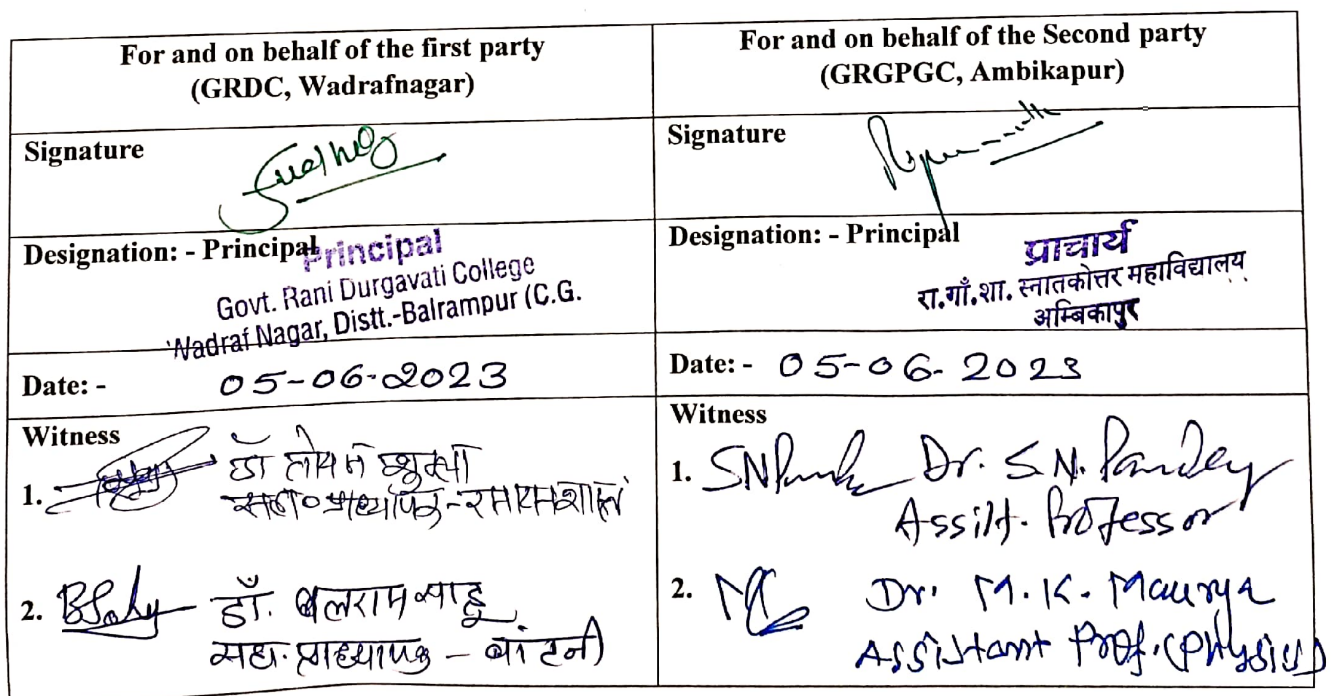 For and on behalf of the first party
(GRDC, Wadrafnagar)
For and on behalf of the Second party
(GRGPGC, Ambikapur)
Signature
Signature
Designation: - Principal
Principal
Govt. Rani Durgavati College
Wadraf Nagar, Distt.-Balrampur (C.G.
Designation: - Principal
प्राचार्य
रा.गाँ.शा. स्नातकोत्तर महाविद्यालय
अम्बिकापुर
Date: - 05-06-2023
Date: - 05-06-2023
Witness
1. डॉ
सहा० प्राध्यापक - रसायनशास्त्र
2. BSahu डॉ. बलराम साहू
सहा. प्राध्यापक - बॉटनी
Witness
1. Dr. S.N. Pandey
Assitt. Professor
2. Dr. M.K. Maurya
Assistant Prof. (Physics)